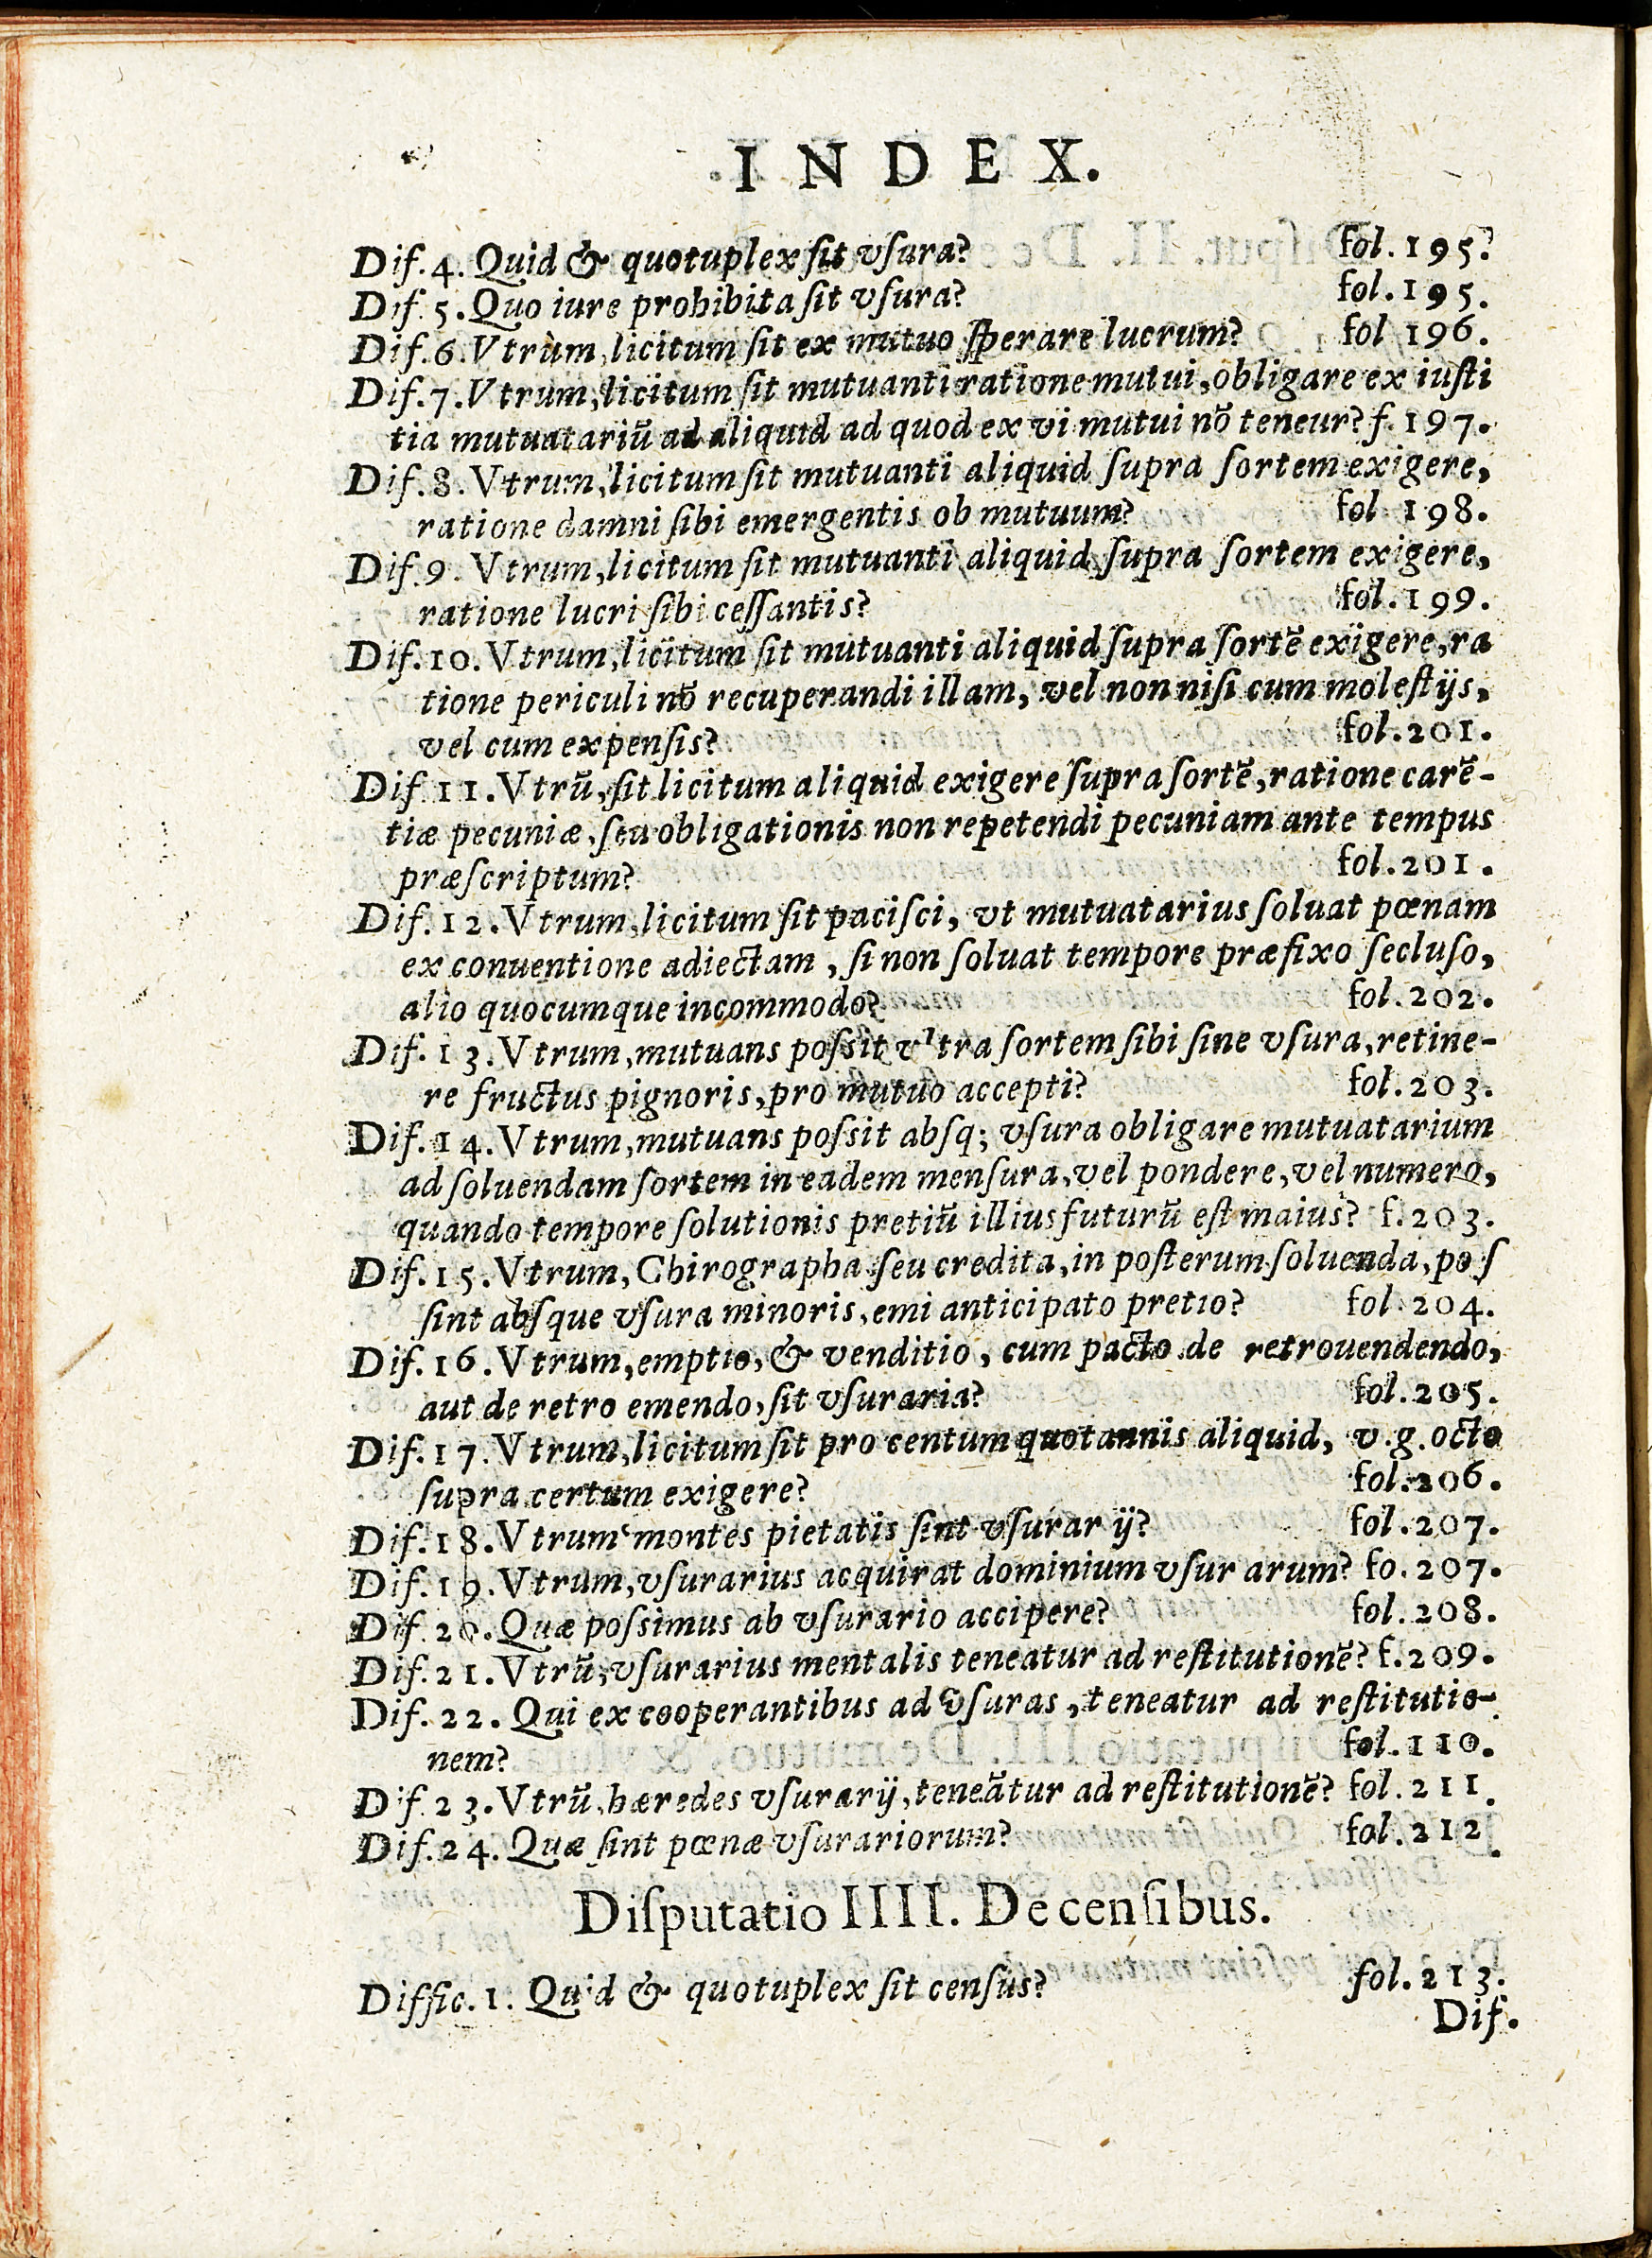 INDEX.
Dif. 4. Quid & quotuplex ſit vſura? fol. 195.
Dif. 5. Quo iure prohibita ſit vſura? fol. 195.
Dif. 6. Vtrùm, licitum ſit ex mutuo ſperare lucrum? fol 196.
Dif. 7. Vtrum, licitum ſit mutuanti ratione mutui, obligare ex iuſti
tia mutuatariũ ad aliquid ad quod ex vi mutui nõ teneur? f. 197.
Dif. 8. Vtrum, licitum ſit mutuanti aliquid ſupra ſortem exigere,
ratione damni ſibi emergentis ob mutuum? fol 198.
Dif. 9. Vtrum, licitum ſit mutuanti aliquid ſupra ſortem exigere,
ratione lucri ſibi ceſſantis? fol. 199.
Dif. 10. Vtrum, licitum ſit mutuanti aliquid ſupra ſortẽ exigere, ra
tione periculi nõ recuperandi illam, vel non niſi cum moleſtijs,
vel cum expenſis? fol. 201.
Dif 11. Vtrũ, ſit licitum aliquid exigere ſupra ſortẽ, ratione carẽ-
tiæ pecuniæ, ſeu obligationis non repetendi pecuniam ante tempus
præſcriptum? fol. 201.
Dif. 12. Vtrum, licitum ſit paciſci, vt mutuatarius ſoluat pœnam
ex conuentione adiectam, ſi non ſoluat tempore præfixo ſecluſo,
alio quocumque incommodo? fol. 202.
Dif. 13. Vtrum, mutuans poſsit vltra ſortem ſibi ſine vſura, retine-
re fructus pignoris, pro mutuo accepti? fol. 203.
Dif. 14. Vtrum, mutuans poſsit abſq; vſura obligare mutuatarium
ad ſoluendam ſortem in eadem menſura, vel pondere, vel numero,
quando tempore ſolutionis pretiũ illius futurũ eſt maius? f. 203.
Dif. 15. Vtrum, Chirographa ſeu credita, in poſterum ſoluenda, poſ
ſint abſque vſura minoris, emi anticipato pretio? fol. 204.
Dif. 16. Vtrum, emptio, & venditio, cum pacto de retrouendendo,
aut de retro emendo, ſit vſuraria? fol. 205.
Dif. 17. Vtrum, licitum ſit pro centum quotannis aliquid, v.g. octo
ſupra certum exigere? fol. 206.
Dif. 18. Vtrum montes pietatis ſint vſurarij? fol. 207.
Dif. 19. Vtrum, vſurarius acquirat dominium vſurarum? fo. 207.
Dif. 20. Quæ poſsimus ab vſurario accipere? fol. 208.
Dif. 21. Vtrũ, vſurarius mentalis teneatur ad reſtitutionẽ? f. 209.
Dif. 22. Qui ex cooperantibus ad vſuras, teneatur ad reſtitutio-
nem? fol. 110.
Dif 23. Vtrũ, hæredes vſurarij, teneãtur ad reſtitutionẽ? fol. 211.
Dif. 24. Quæ ſint pœnæ vſurariorum? fol. 212.
Diſputatio IIII. De cenſibus.
Diffic. 1. Quid & quotuplex ſit cenſus? fol. 213.
Dif.